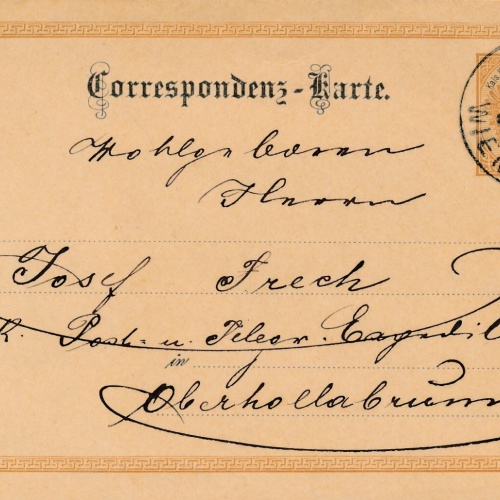 Correspondenz-Karte.
WIEN
Wohlgeboren
Herrn
Josef Frech
K. Post- u. Telegr. Expedit
in
Oberhollabrunn